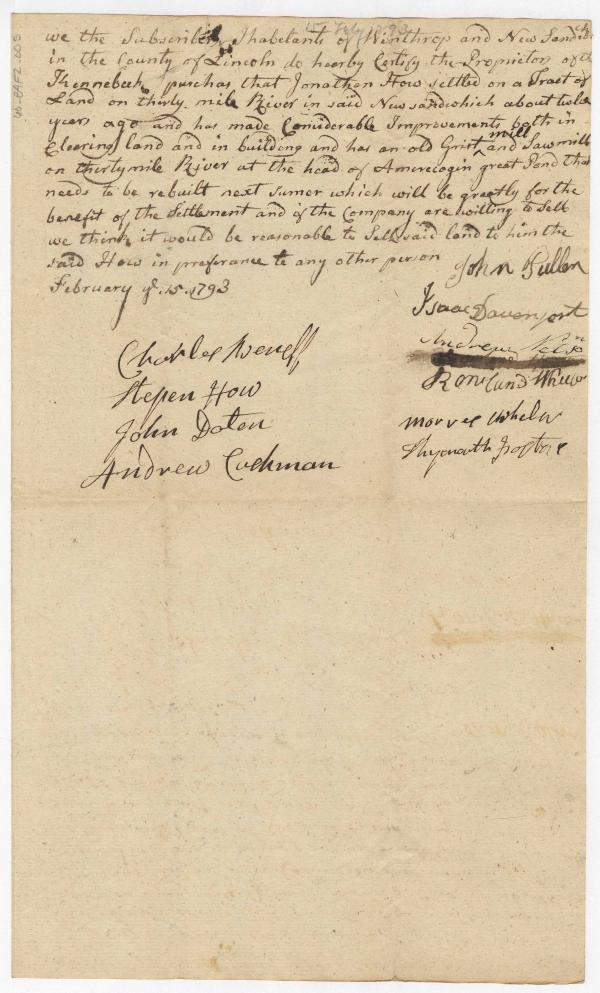 15 Feby 1793
we the Subscribers Ihabetants of Winthrop and New Sandwich
in the County of Lincoln do hearby Certify the Proprietors of the
Kennebeck purchas that Jonathan How settled on a Tract of
Land on thirty mile River in said New sandwhich about twelve
years ago and has made Considerable Improvements both in
Clearing land and in building and has an old Grist mill and Sawmill
on thirtymile River at the head of Amerecogin great Pond that
needs to be rebuilt next sumer which will be greatly for the
benefit of the Settlement and if the Company are willing to Sell
we think it would be reasonable to Sell said land to him the
said How in preferance to any other person
February ye 15 1793
John Pullen
Isaac Davenport
Andrew
Charles
Stepen How
John Daten
Andrew Cuchman
US-EAFZ-003